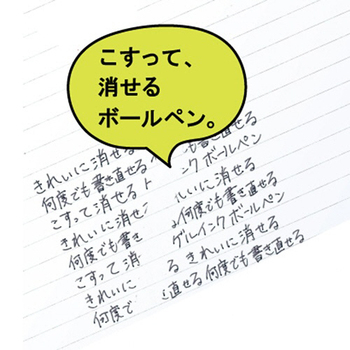 こすって、
消せる
ボールペン。
きれいに消せる も書き直せる
何度でも書き直せる ンク ボールペン
こすって消せる いに消せる
きれいに消せ 何度でも書き直せる
何度でも書き ゲルインク ボールペン
こすって消 る きれいに消せる
きれいに 直せる 何度でも書き直せる
何度で